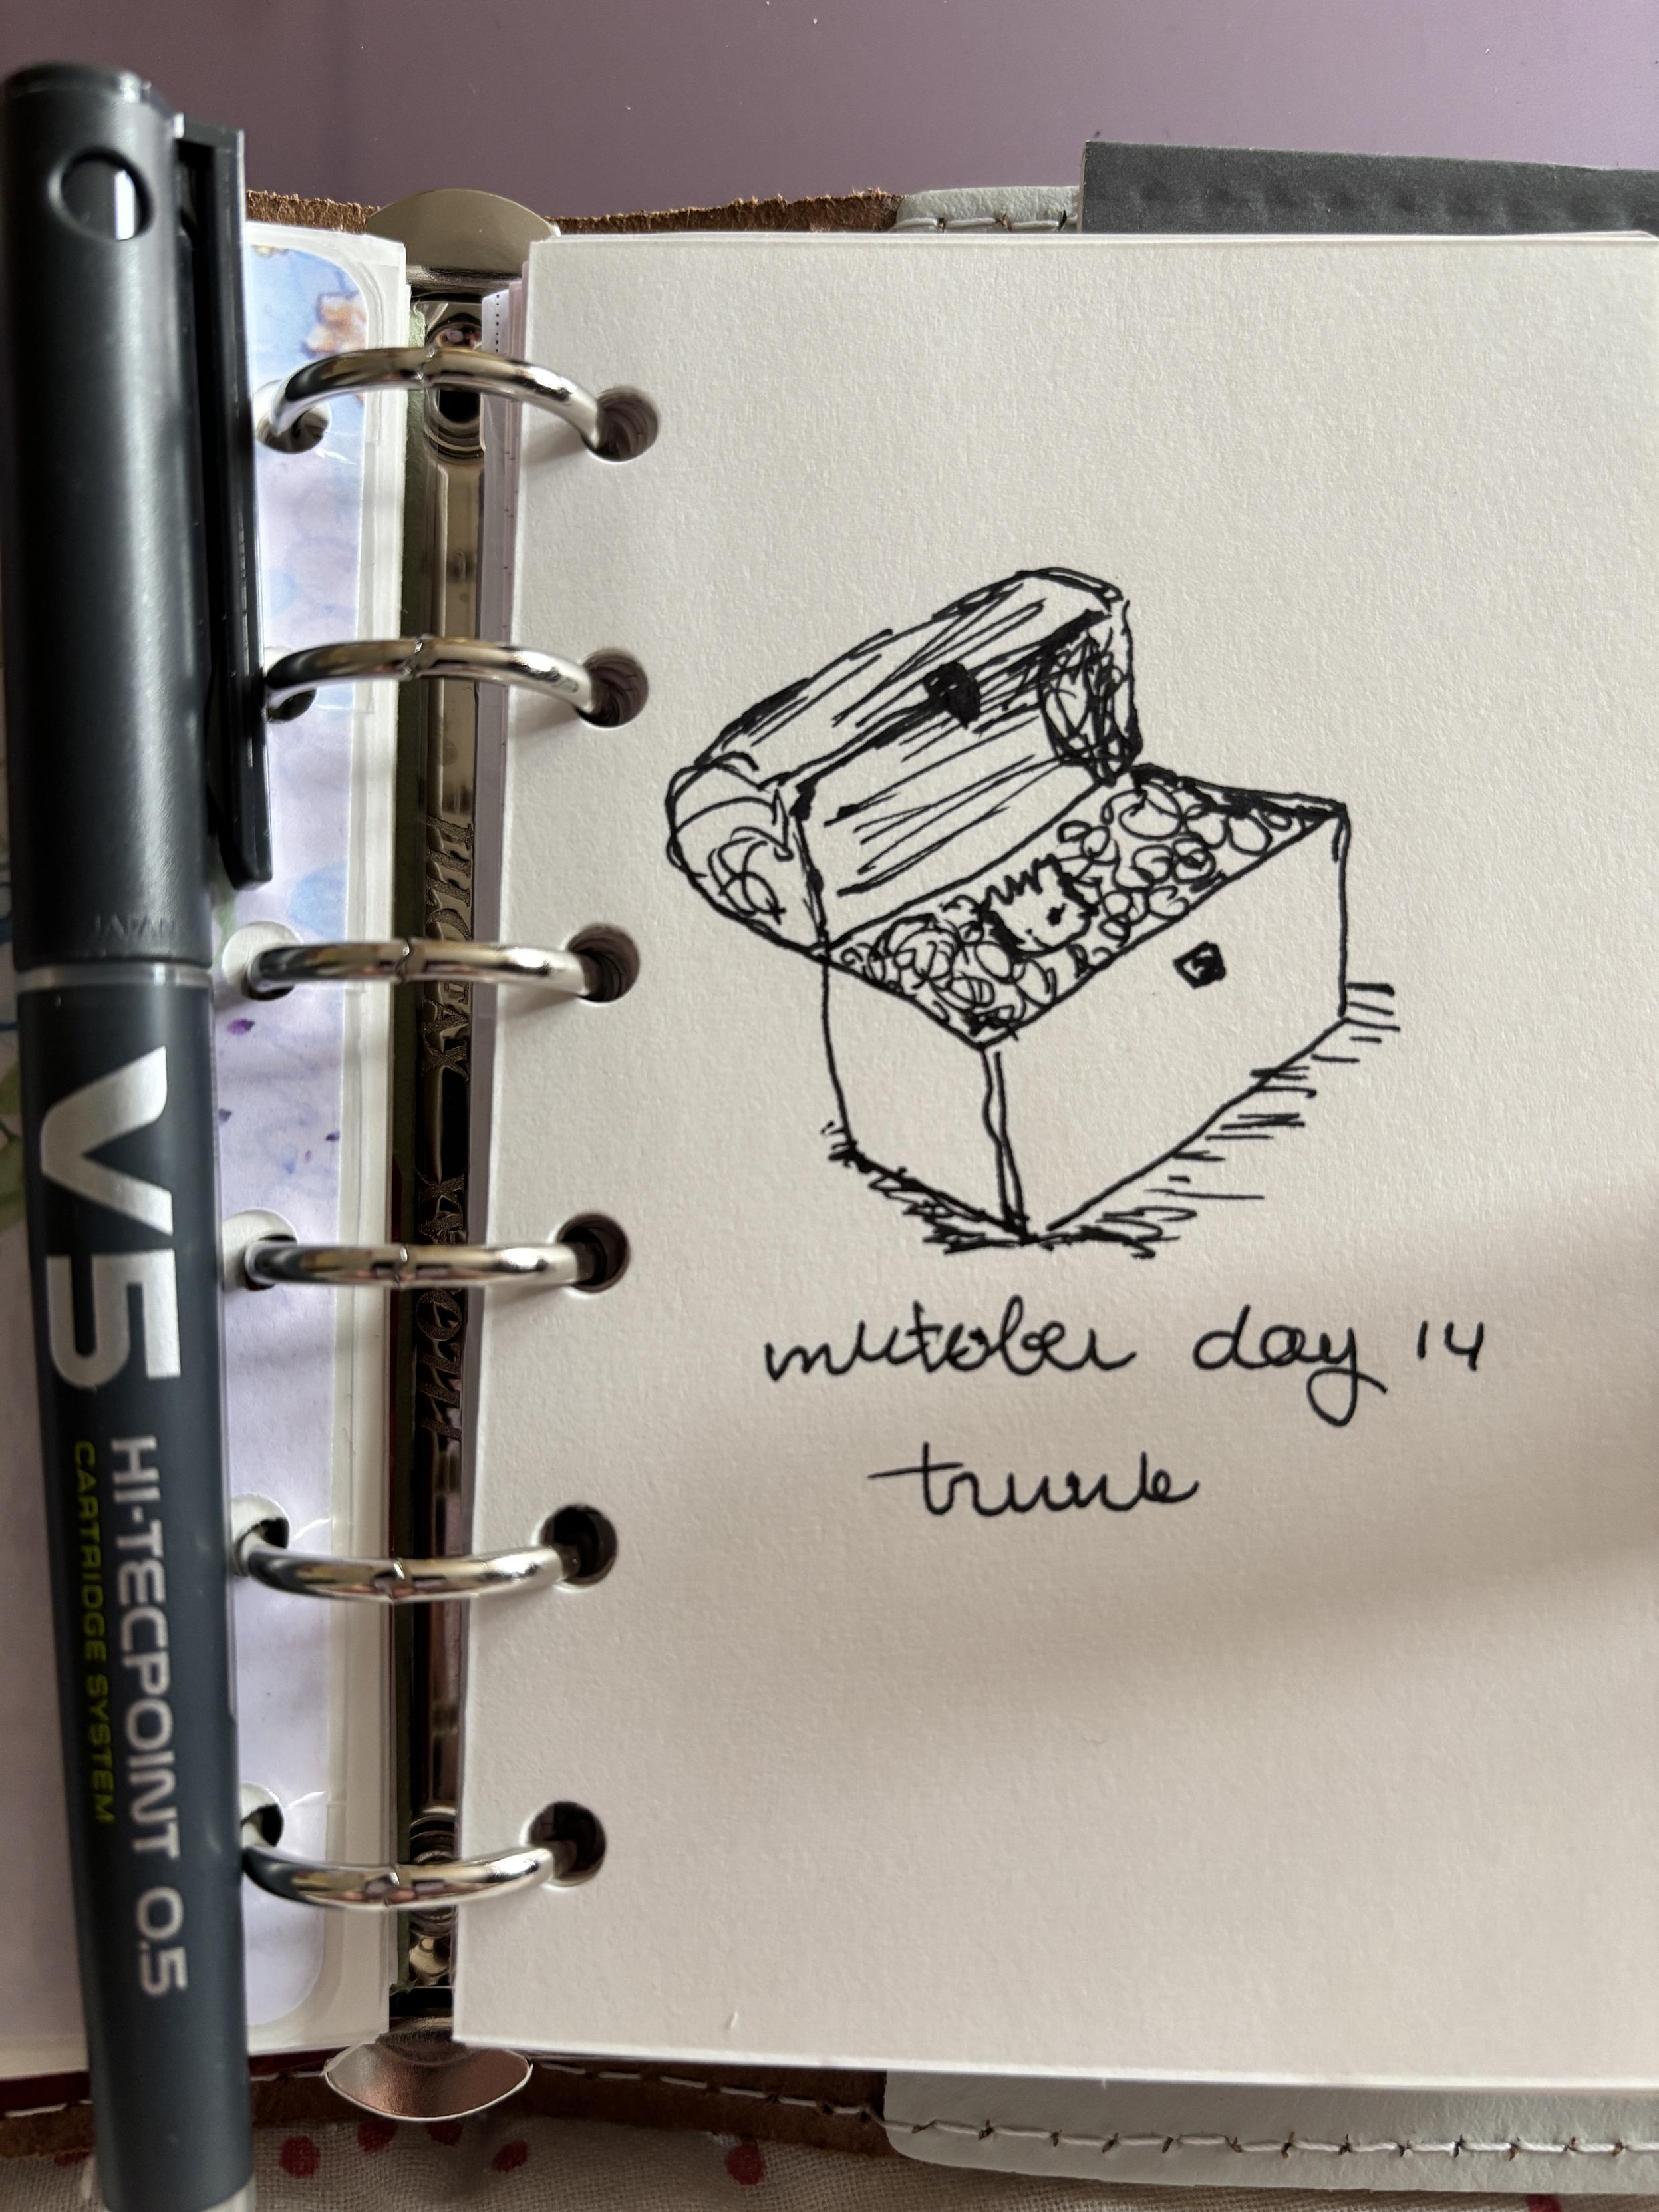 JAPAN
V5
HI-TECPOINT 0.5
CARTRIDGE SYSTEM
mktober day 14
trunk